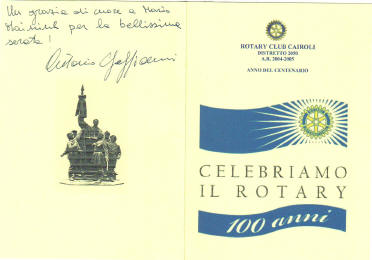 Un grazie di cuore a Mario
per la bellissima
serata!
ROTARY CLUB CAIROLI
DISTRETTO 2050
A.R. 2004-2005
ANNO DEL CENTENARIO
CELEBRIAMO
IL ROTARY
100 anni